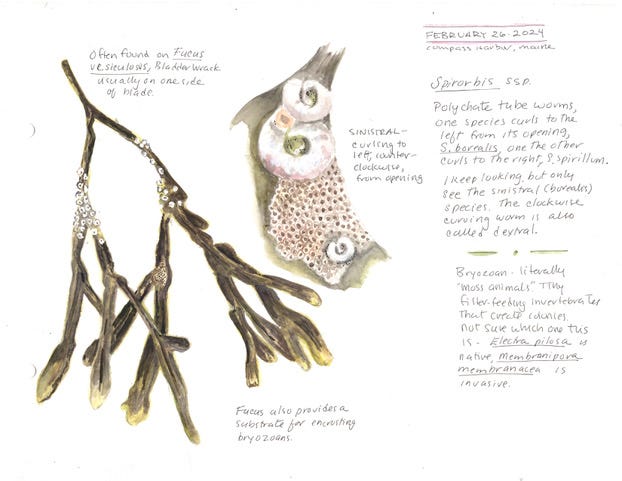 FEBRUARY 26-2024
Compass Harbor, Maine
Often found on Fucus
vesiculosis, Bladder Wrack
usually on one side
of blade.
SINISTRAL-
curling to
left, counter-
clockwise,
from opening
Spirorbis SSP.
Polychate tube worms,
one species curls to the
left from its opening,
S. borealis, one the other
curls to the right, S. spirillum.
I keep looking, but only
see the sinistral (borealis)
species. The clockwise
curving worm is also
called dextral.
Bryozoan - literally
"moss animals". Tiny
filter-feeding invertebrates
that create colonies.
Not sure which one this
is - Electra pilosa is
native, membranipora
membranacea is
invasive.
Fucus also provides a
substrate for encrusting
bryozoans.